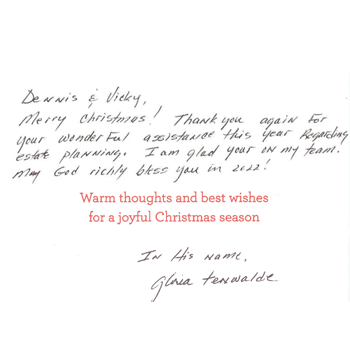 Dennis & Vicky,
Merry Christmas! Thank you again for
your wonderful assistance this year Regarding
estate planning. I am glad your on my team.
May God richly bless you in 2022!
Warm thoughts and best wishes
for a joyful Christmas season
In His name,
Gloria Tenwalde